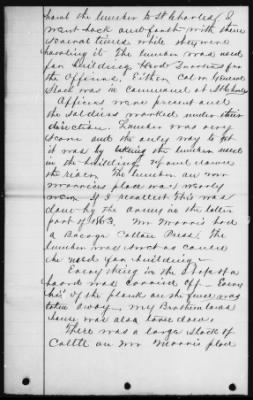 haul the lumber to St Charles. I
went back and forth with them
several times while they were
hauling it. The lumber was used
for building Head Quarters for
the Officers. Either Col or General
Stack was in command at St Charles
Officers were present and
the soldiers worked under their
direction. Lumber was very
scarce and the only way to get
it was by taking the lumber used
in the buildings up and down
the river. The lumber on Mr
Morris's place was nearly
new. If I recollect this was
done by the army in the latter
part of 1863. Mr Morris had
a Cotton Press. The
lumber was such as could
be used for building.
Every thing in the shape of a
board was carried off. Every
bit of the plank on the fence was
taken away. My Brother in laws
house was also torn down.
There was a large stock of
Cattle on Mr Morris place